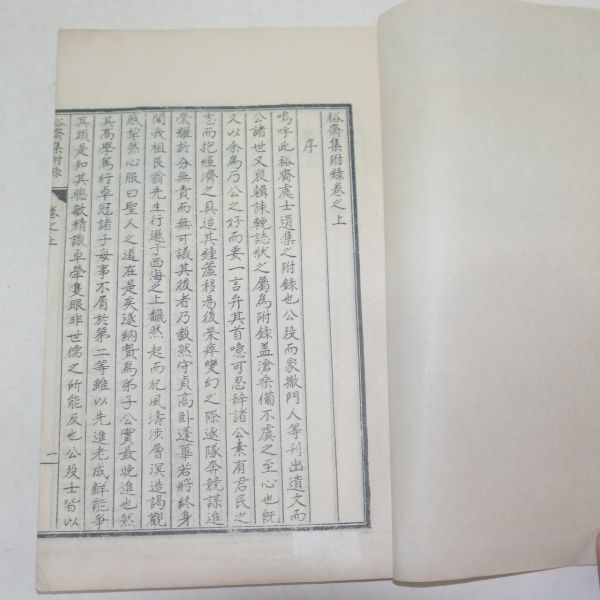 裕齋集附錄卷之上
序
嗚呼此裕齋處士遺集之附錄也公設而象撤門人等刊出遺文而
公諸世又裒輯誄輓誌狀之屬爲附錄盖滄桑備不虞之至心也旣
又以余爲乃公之好而要一言弁其首噫可忍辞諸公素有君民之
志而抱經濟之具迨其鍾簴移易後榮瘁變幻之際逐隊奔競謀進
榮耀於分無責而無可議其後者乃毅然守貞高卧蓬蓽若將終身
聞我祖艮翁先生行遯于西海之上飜然起而犯風濤涉層溟造謁觀
感犂然心服曰聖人之道在是矣遂納贄爲弟子公實最晩進也然
其高學篤行卓冠諸子每事不屑於第二等雖以先進老成鮮能爭
其頭是知其聰敏精識卓犖隻眼非世儒之所能及也公設士皆以
裕齋集附錄
卷之上
一